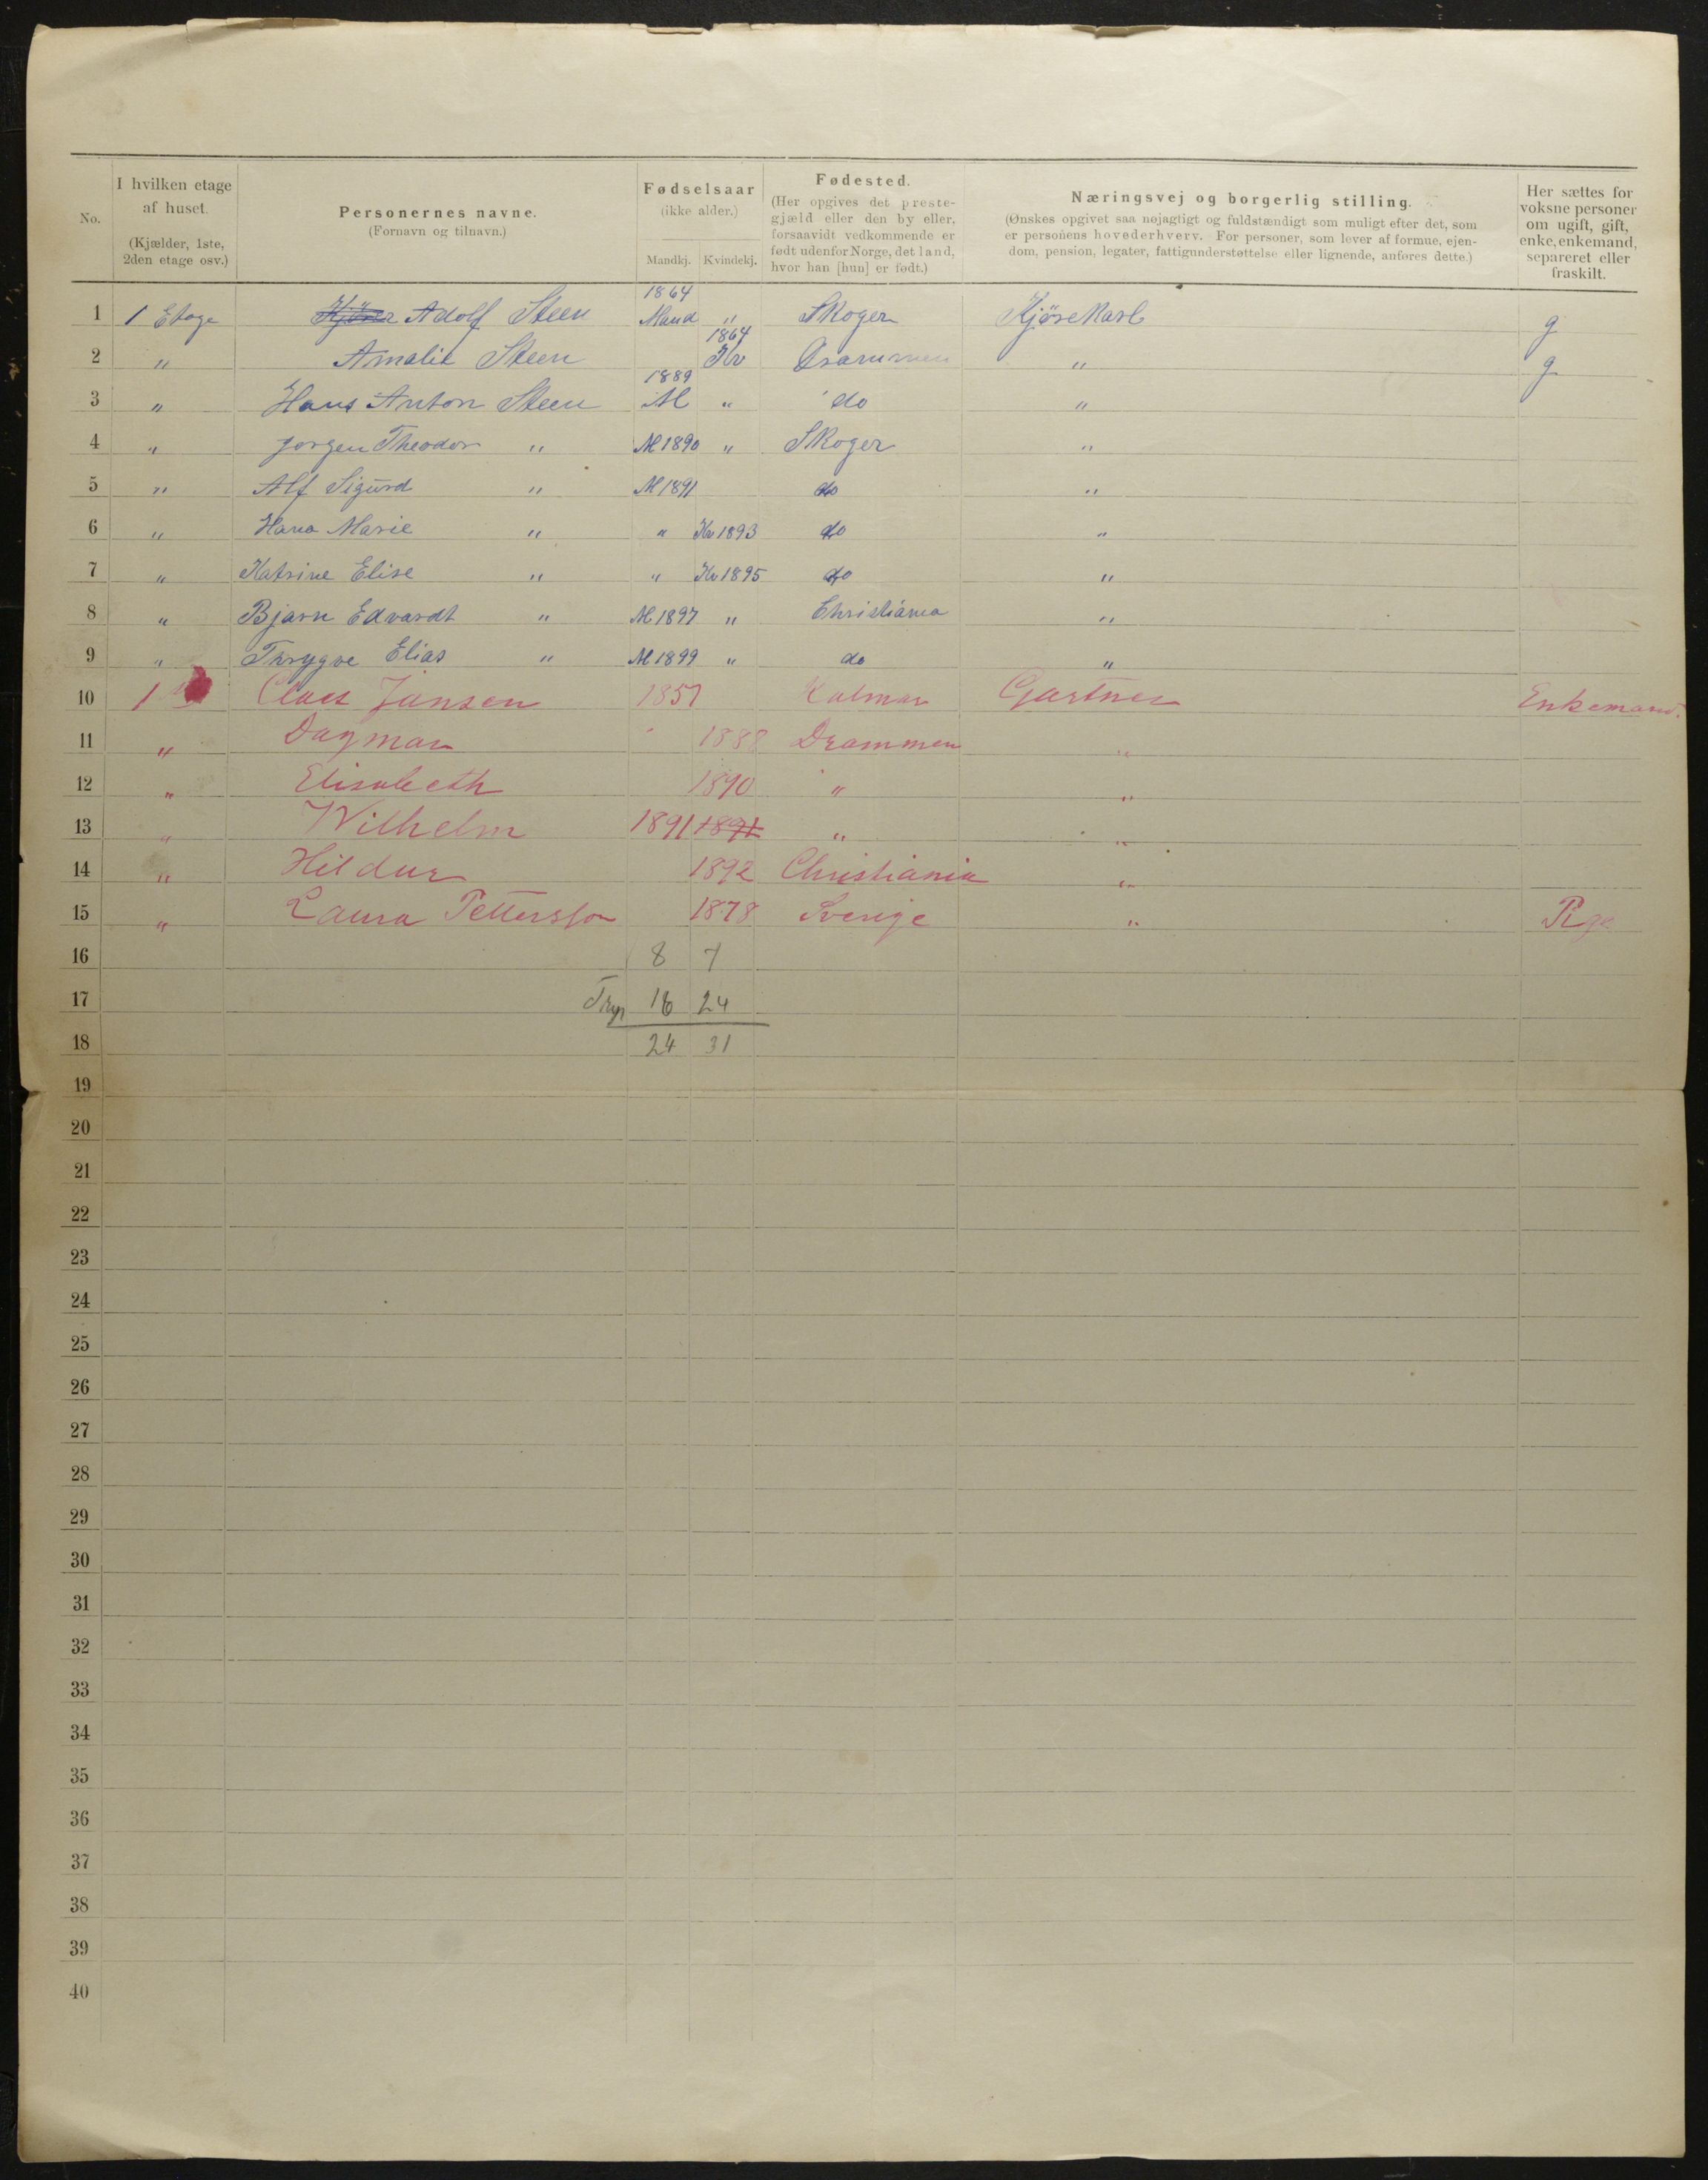 No. I hvilken etage af huset. (Kjælder, 1ste, 2den etage osv.) Personernes navne. (Fornavn og tilnavn.) Fødselsaar (ikke alder.) Mandkj. Kvindekj. Fødested. (Her opgives det prestegjæld eller den by eller, forsaavidt vedkommende er født udenfor Norge, det land, hvor han [hun] er født.) Næringsvej og borgerlig stilling. (Ønskes opgivet saa nøjagtigt og fuldstændigt som muligt efter det, som er personens hovederhverv. For personer, som lever af formue, ejendom, pension, legater, fattigunderstøttelse eller lignende, anføres dette.) Her sættes for voksne personer om ugift, gift, enke, enkemand, separeret eller fraskilt.
1 1 Etage Adolf Steen 1864 Mand " Skoger Kjørekarl g
2 " Amalie Steen 1864 Kv Drammen " g
3 " Hans Anton Steen 1889 M " do "
4 " Jørgen Theodor " M 1890 " Skoger "
5 " Alf Sigurd " M 1891 do "
6 " Hana Marie " " Kv 1893 do "
7 " Katrine Elise " " Kv 1895 do "
8 " Bjarn Edvardt " M 1897 " Christiania "
9 " Thrygve Elias " M 1899 " do "
10 1 Claes Jansen 1857 Kalmar Gartner Enkemand.
11 " Dagmar 1888 Drammen "
12 " Elisabeth 1890 " "
13 " Wilhelm 1891 1891 " "
14 " Hildur 1892 Christiania "
15 " Laura Petterson 1878 Sverige " Pige
16 8 7
17 16 24
18 24 31
19
20
21
22
23
24
25
26
27
28
29
30
31
32
33
34
35
36
37
38
39
40